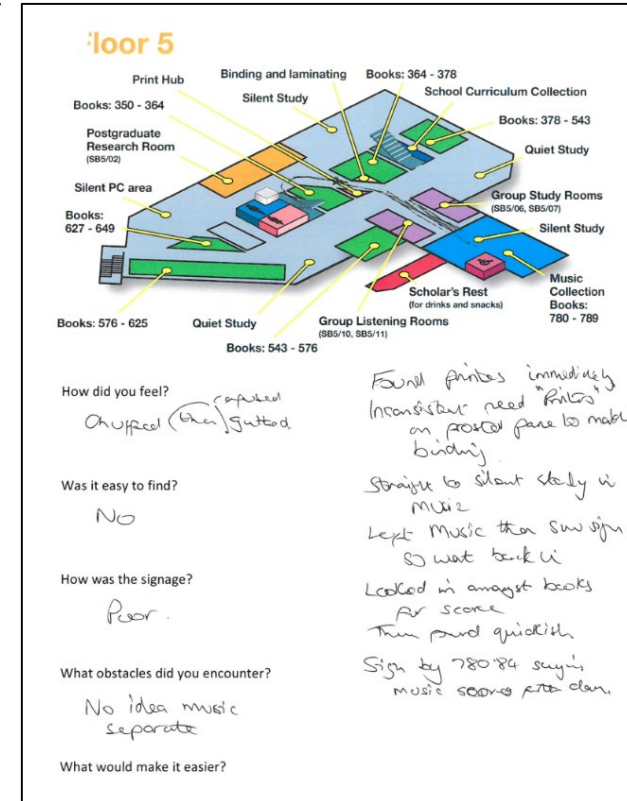 loor 5
Print Hub
Binding and laminating
Books: 364 - 378
Silent Study
School Curriculum Collection
Books: 350 - 364
Books: 378 - 543
Postgraduate
Research Room
(SB5/02)
Quiet Study
Silent PC area
Group Study Rooms
(SB5/06, SB5/07)
Books:
627 - 649
Silent Study
Scholar's Rest
(for drinks and snacks)
Music
Collection
Books:
780 - 789
Books: 576 - 625
Quiet Study
Group Listening Rooms
(SB5/10, SB5/11)
Books: 543 - 576
How did you feel?
Chuffed (then) gutted
Was it easy to find?
No
How was the signage?
Poor.
What obstacles did you encounter?
No idea music
separate
What would make it easier?
Found printers immediately
Inconsistent need "Printers"
on frosted pane to match
binding
Straight to silent study in
music
Left Music then saw sign
so went back in
Looked in amongst books
for score
Then found quickish
Sign by 780'84 saying
music scores